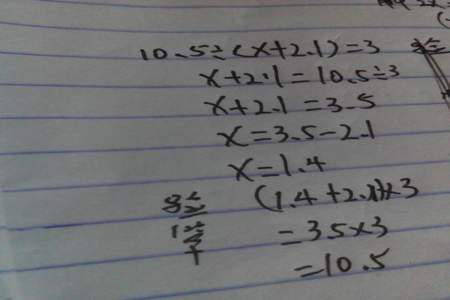 10.5÷(x+2.1)=3
x+2.1=10.5÷3
x+2.1=3.5
x=3.5-2.1
x=1.4
(1.4+2.1)×3
=3.5×3
=10.5